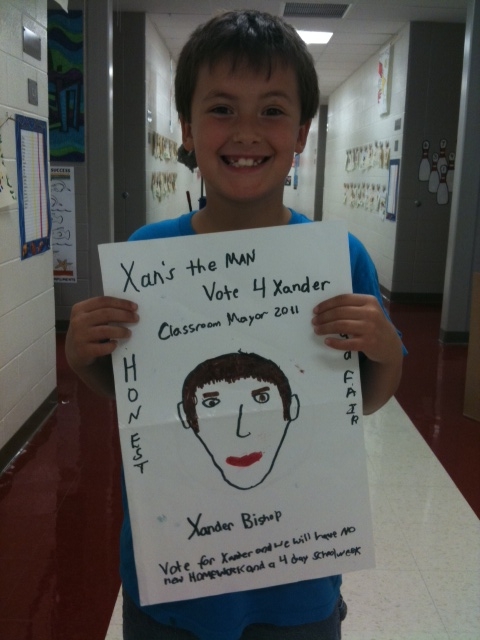 Xan's the MAN
Vote 4 Xander
Classroom Mayor 2011
HONEST
FAIR
Xander Bishop
Vote for Xander and we will have NO
new HOMEWORK and a 4 day school week